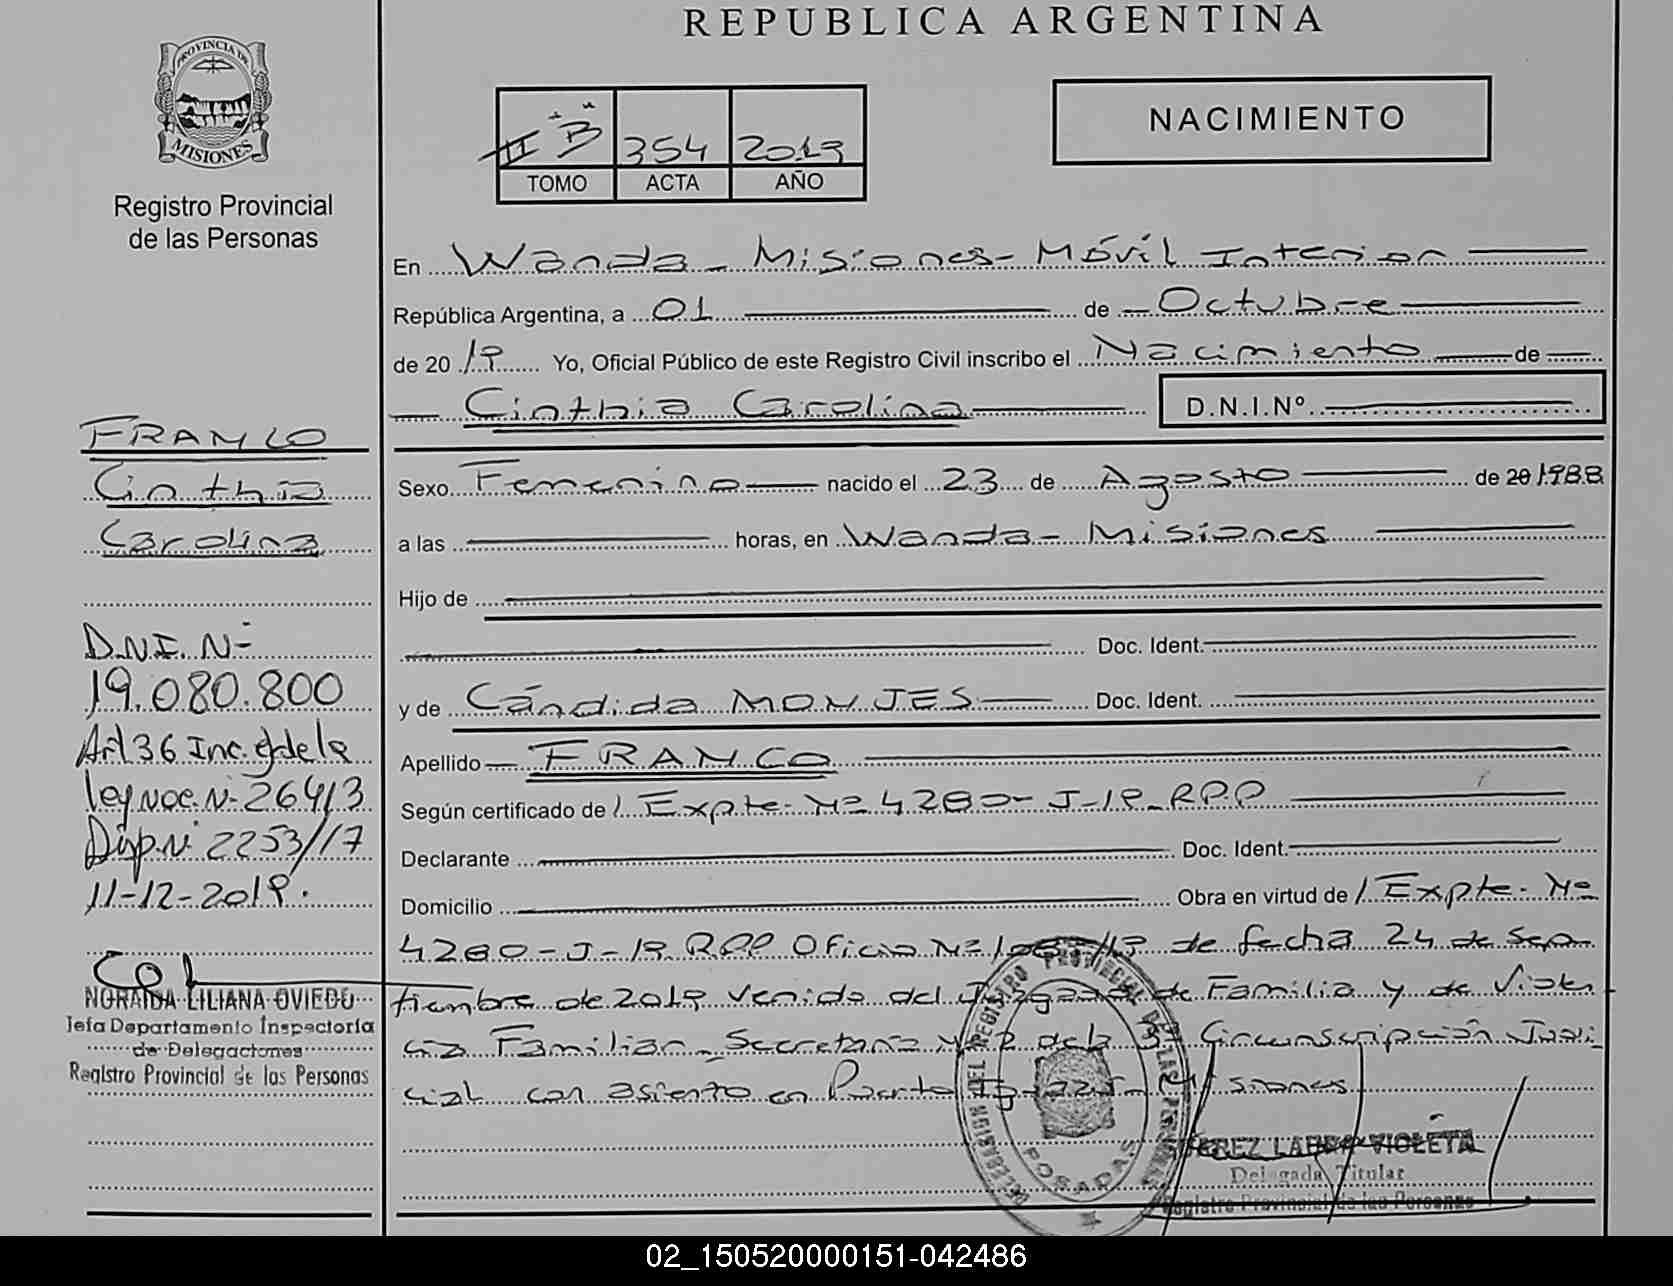 REPUBLICA ARGENTINA
PROVINCIA DE
MISIONES
Registro Provincial
de las Personas
II "B" 354 2019
TOMO ACTA AÑO
NACIMIENTO
En Wanda - Misiones - Móvil Interior
República Argentina, a 01 de Octubre
de 2019 Yo, Oficial Público de este Registro Civil inscribo el Nacimiento de
Cinthia Carolina D.N.I.Nº
Sexo Femenino nacido el 23 de Agosto de 20 1988
a las horas, en Wanda - Misiones
Hijo de
Doc. Ident.
y de Cándida MONJES Doc. Ident.
Apellido FRANCO
Según certificado de / Expte. Nº 4280-J-19-RPP
Declarante Doc. Ident.
Domicilio Obra en virtud de / Expte. Nº
4280-J-19 RPP Oficio Nº /19 de fecha 24 de Sep
tiembre de 2019 venido del Juzgado de Familia y de Violen
cia Familiar - Secretaría Nº 2 de la 3ª Circunscripción Judi
cial con asiento en Puerto Iguazú - Misiones
FRANCO
Cinthia
Carolina
D.N.I. Nº
19.080.800
Art 36 Inc. e) de la
ley Nac. Nº 26413
Disp. Nº 2253/17
11-12-2019.
NORAIDA LILIANA OVIEDO
Jefa Departamento Inspectoría
de Delegaciones
Registro Provincial de las Personas
DELEGACION DEL REGISTRO PROVINCIAL DE LAS PERSONAS
POSADAS
VIOLETA
Delegada Titular
Registro Provincial de las Personas
02_150520000151-042486